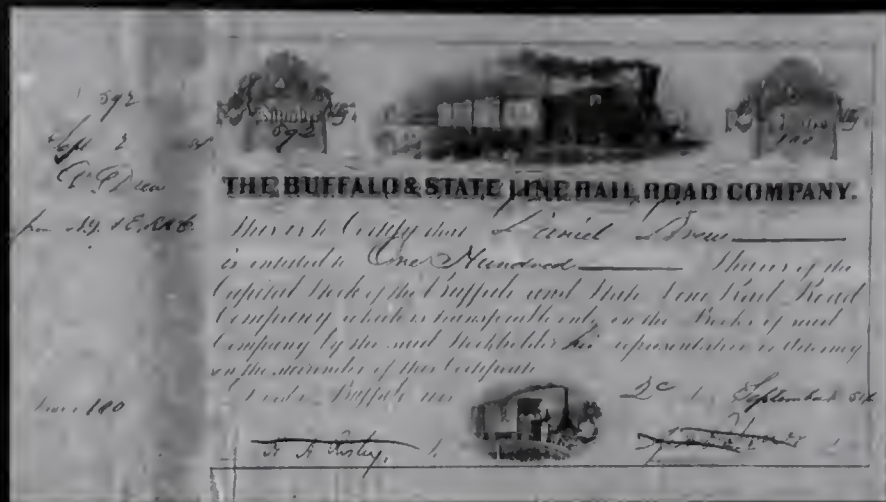 592
Sept 2
Drew
from N.Y. & E. RR Co
Number
592
100
THE BUFFALO & STATE LINE RAIL ROAD COMPANY.
This is to Certify that Daniel Drew
is entitled to One Hundred Shares of the
Capital Stock of the Buffalo and State Line Rail Road
Company which is transferable only on the Books of said
Company by the said Stockholder his representative or attorney
on the surrender of this Certificate
Buffalo 2d September
100